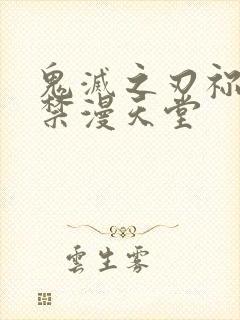 鬼滅之刃祢
禁漫天堂
雲生雾